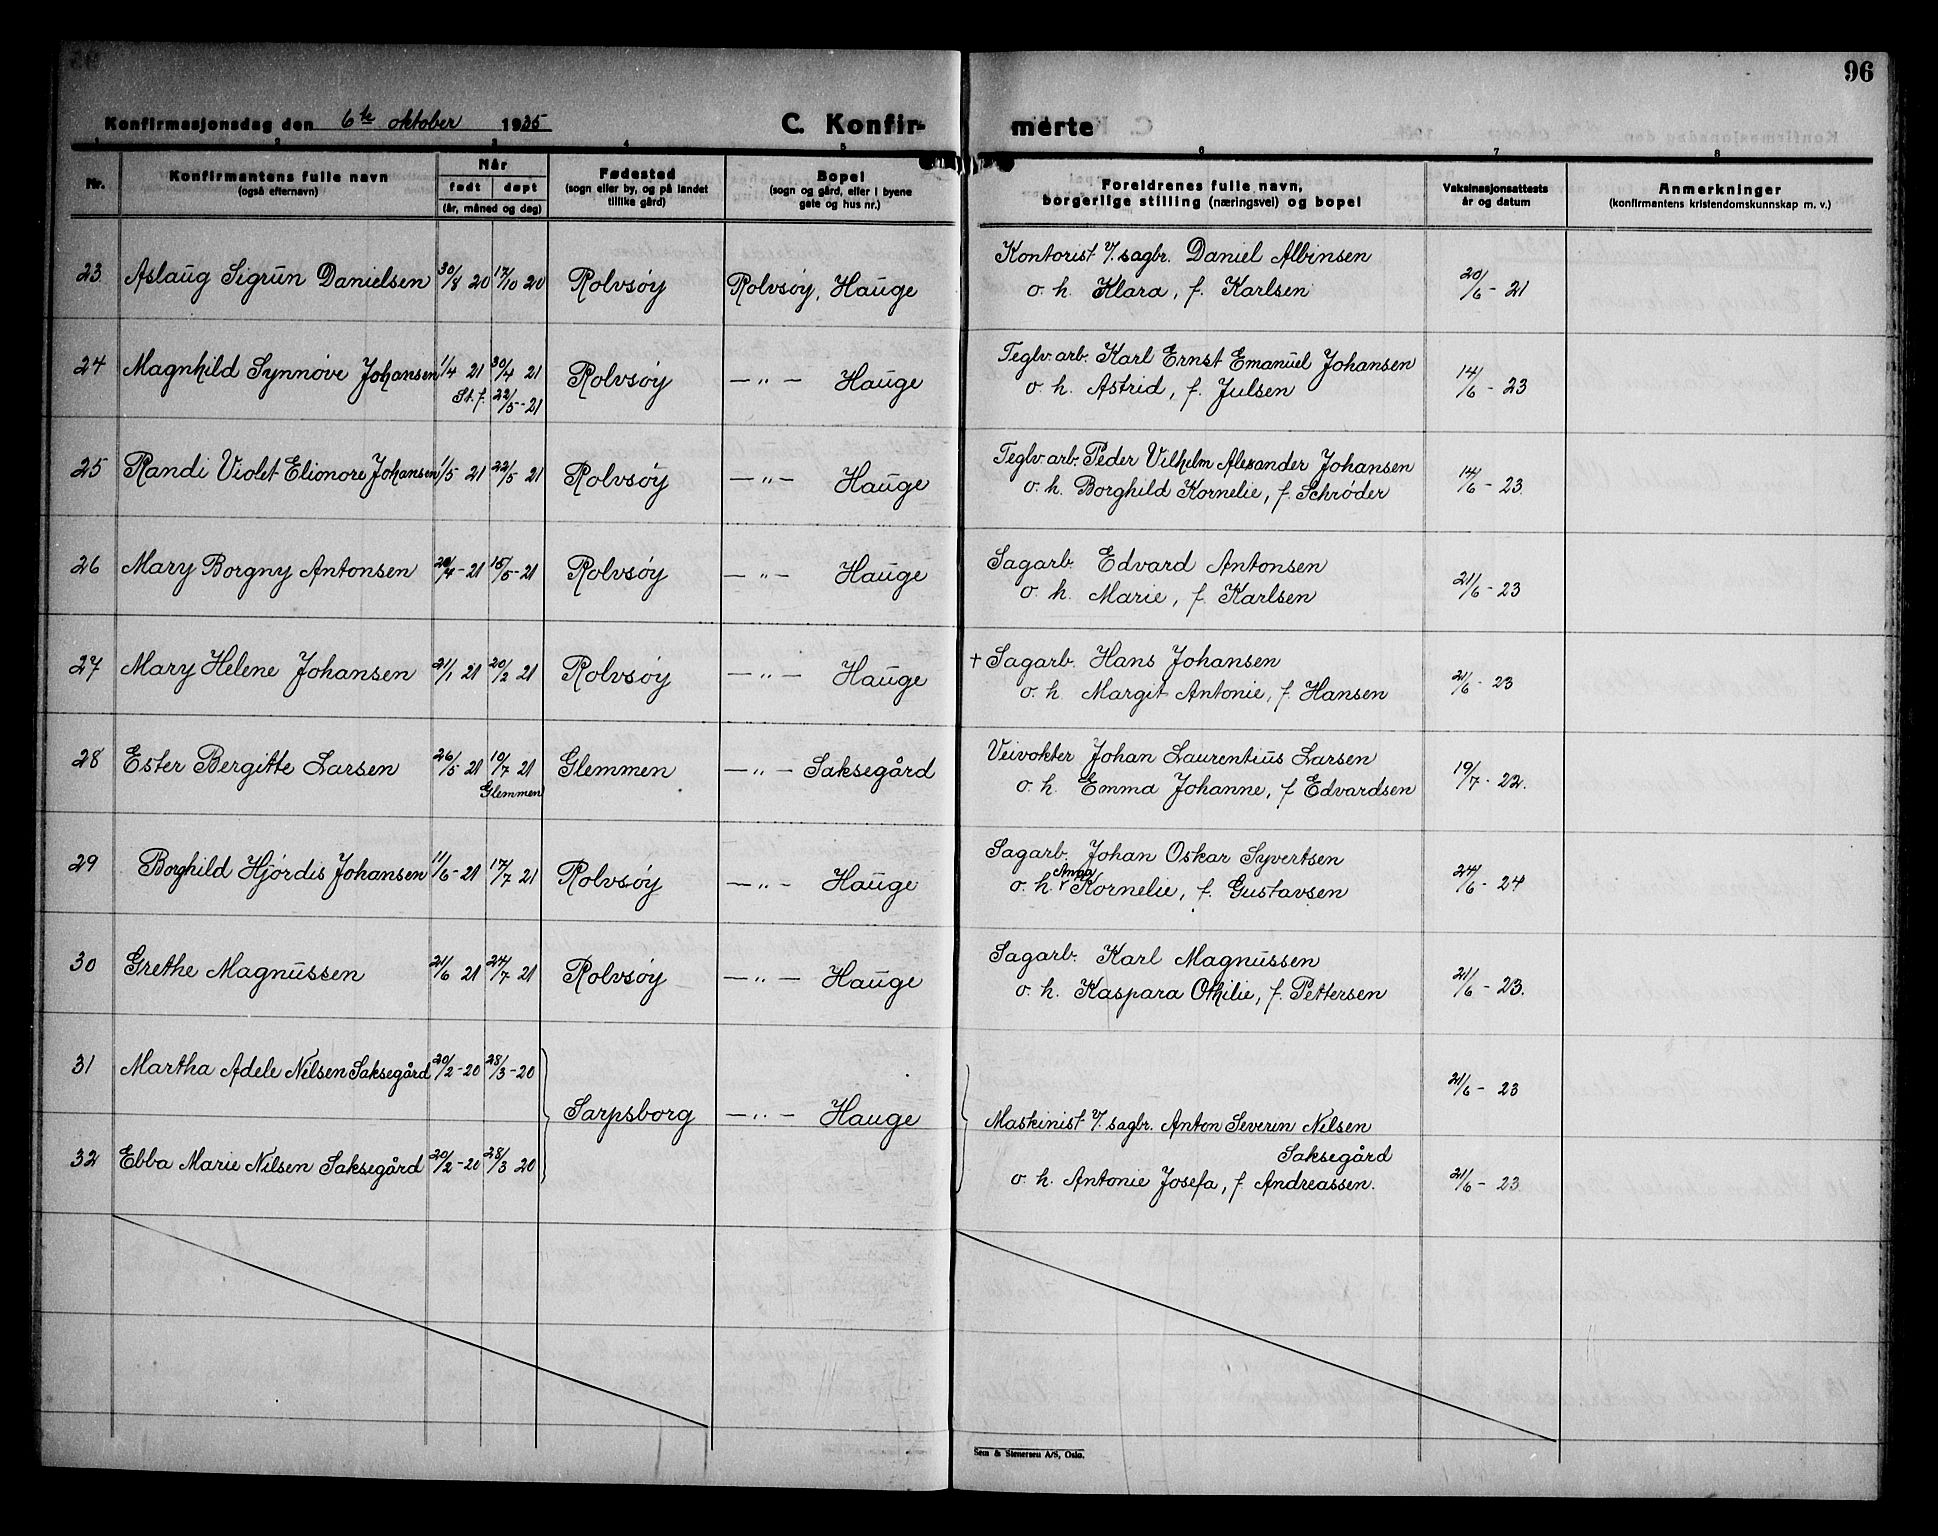 96
Konfirmasjonsdag den 6te oktober 1935
C. Konfirmerte
1 2 3 4 5 6 7 8
Nr.
Konfirmantens fulle navn
(også efternavn)
Når
født døpt
(år, måned og dag)
Fødested
(sogn eller by, og på landet
tillike gård)
Bopel
(sogn og gård, eller i byene
gate og hus nr.)
Foreldrenes fulle navn,
borgerlige stilling (næringsvei) og bopel
Vaksinasjonsattests
år og datum
Anmerkninger
(konfirmantens kristendomskunnskap m. v.)
23 Aslaug Sigrun Danielsen 30/8 20 17/10 20 Rolvsøy Rolvsøy, Hauge Kontorist v/. sagbr. Daniel Albinsen
o. h. Klara, f. Karlsen 20/6 - 21
24 Magnhild Synnøve Johansen 1/4 21 30/4 21 Rolvsøy — " — Hauge Teglv.arb. Karl Ernst Emanuel Johansen
St. f. 22/5 - 21 o. h. Astrid, f. Julsen 14/6 - 23
25 Randi Violet Elionore Johansen 1/5 21 22/5 21 Rolvsøy — " — Hauge Teglv.arb. Peder Vilhelm Alexander Johansen
o. h. Borghild Kornelie, f. Schrøder 14/6 - 23
26 Mary Borgny Antonsen 20/4 - 21 15/5 - 21 Rolvsøy — " — Hauge Sagarb. Edvard Antonsen
o. h. Marie, f. Karlsen 21/6 - 23
27 Mary Helene Johansen 21/1 21 20/2 21 Rolvsøy — " — Hauge + Sagarb. Hans Johansen
o. h. Margit Antonie, f. Hansen 21/6 - 23
28 Ester Bergitte Larsen 26/5 21 10/7 21 Glemmen — " — Saksegård Veivokter Johan Laurentius Larsen
Glemmen o. h. Emma Johanne, f. Edvardsen 19/7 - 22.
29 Borghild Hjørdis Johansen 11/6 - 21 17/7 21 Rolvsøy — " — Hauge Sagarb. Johan Oskar Syvertsen
o. h. Anna Kornelie, f. Gustavsen 24/6 - 24
30 Grethe Magnussen 21/6 21 24/7 21 Rolvsøy — " — Hauge Sagarb. Karl Magnussen
o. h. Kaspara Othilie, f. Pettersen 21/6 - 23.
31 Martha Adele Nilsen Saksegård 20/2 - 20 28/3 - 20 21/6 - 23
Sarpsborg — " — Hauge Maskinist v/. sagbr. Anton Severin Nilsen
Saksegård
32 Ebba Marie Nilsen Saksegård 20/2 - 20 28/3 20 o. h. Antonie Josefa, f. Andreassen. 21/6 - 23
Sem & Stenersen A/S, Oslo.